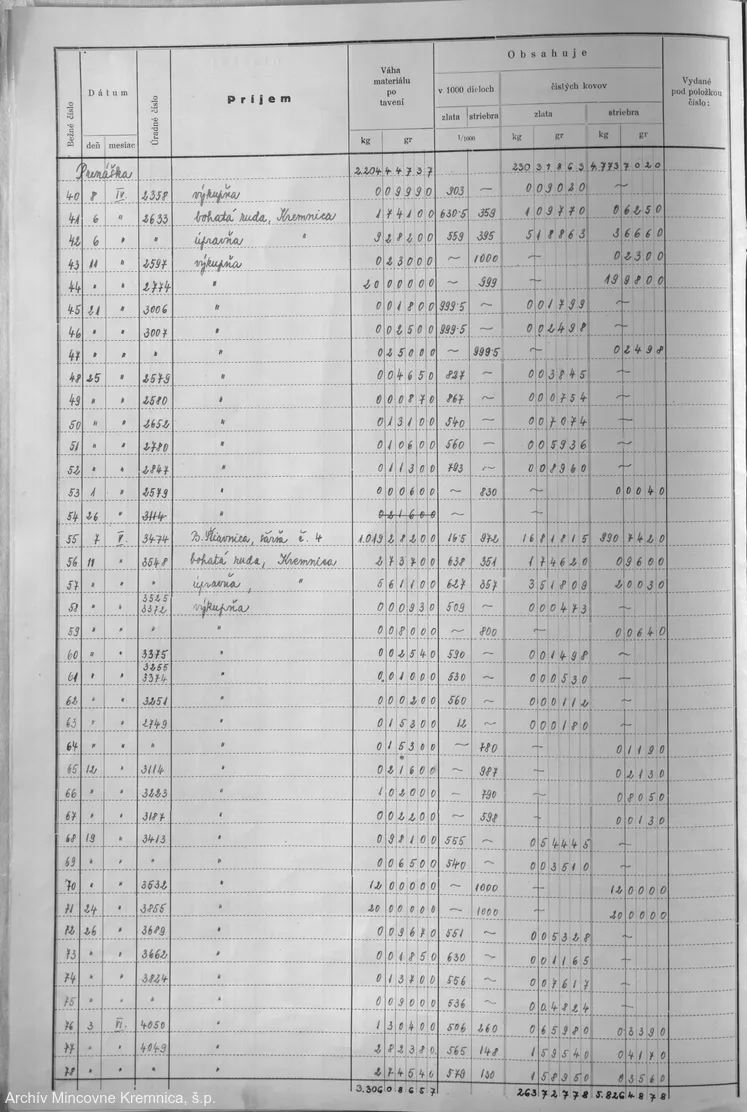 Obsahuje
Bežné číslo Dátum Úradné číslo Príjem Váha materiálu po tavení v 1000 dieloch čistých kovov Vydané pod položkou číslo:
zlata striebra zlata striebra
deň mesiac kg gr 1/1000 kg gr kg gr
Prenáška 2.204 44737 230 31863 4.773 7020
40 8 IV. 2358 výkupňa 0 09990 903 — 0 09020 —
41 6 " 2633 bohatá ruda, Kremnica 1 74100 630·5 359 1 09770 0 6250
42 6 " " úpravňa " 9 28200 559 395 5 18863 3 6660
43 11 " 2597 výkupňa 0 23000 — 1000 — 0 2300
44 " " 2774 " 20 00000 — 999 — 19 9800
45 21 " 3006 " 0 01800 999·5 — 0 01799 —
46 " " 3007 " 0 02500 999·5 — 0 02498 —
47 " " " " 0 25000 — 999·5 — 0 2498
48 25 " 2579 " 0 04650 827 — 0 03845 —
49 " " 2580 " 0 00870 867 — 0 00754 —
50 " " 2652 " 0 13100 540 — 0 07074 —
51 " " 2780 " 0 10600 560 — 0 05936 —
52 " " 2847 " 0 11300 793 — 0 08960 —
53 1 " 2579 " 0 00600 — 830 — 0 0040
54 26 " 3114 " 0 21600 — —
55 7 V. 3474 B. Štiavnica, šarža č. 4 1.019 28200 16·5 972 16 81815 990 7420
56 11 " 3548 bohatá ruda, Kremnica 2 73700 638 351 1 74620 0 9600
57 " " " úpravňa, " 5 61100 627 357 3 51809 2 0030
58 " " 3525 3372 výkupňa 0 00930 509 — 0 00473 —
59 " " " " 0 08000 — 800 — 0 0640
60 " " 3375 " 0 02540 590 — 0 01498 —
61 " " 3255 3374 " 0,01000 530 — 0 00530 —
62 " " 3251 " 0 00200 560 — 0 00112 —
63 " " 2749 " 0 15300 12 — 0 00180 —
64 " " " " 0 15300 — 780 — 0 1190
65 12 " 3114 " 0 21600 — 987 — 0 2130
66 " " 3223 " 1 02000 — 790 — 0 8050
67 " " 3187 " 0 02200 — 598 — 0 0130
68 19 " 3413 " 0 98100 555 — 0 54445 —
69 " " " " 0 06500 540 — 0 03510 —
70 " " 3532 " 12 00000 — 1000 — 12 0000
71 24 " 3855 " 20 00000 — 1000 — 20 0000
72 26 " 3689 " 0 09670 551 — 0 05328 —
73 " " 3662 " 0 01850 630 — 0 01165 —
74 " " 3824 " 0 13700 556 — 0 07617 —
75 " " " " 0 09000 536 — 0 04824 —
76 3 VI. 4050 " 1 30400 506 260 0 65980 0 3390
77 " " 4049 " 2 82380 565 148 1 59540 0 4170
78 " " " " 2 74540 579 130 1 58950 0 3560
3.306 08657 263 72778 5.826 4878
Archív Mincovne Kremnica, š.p.